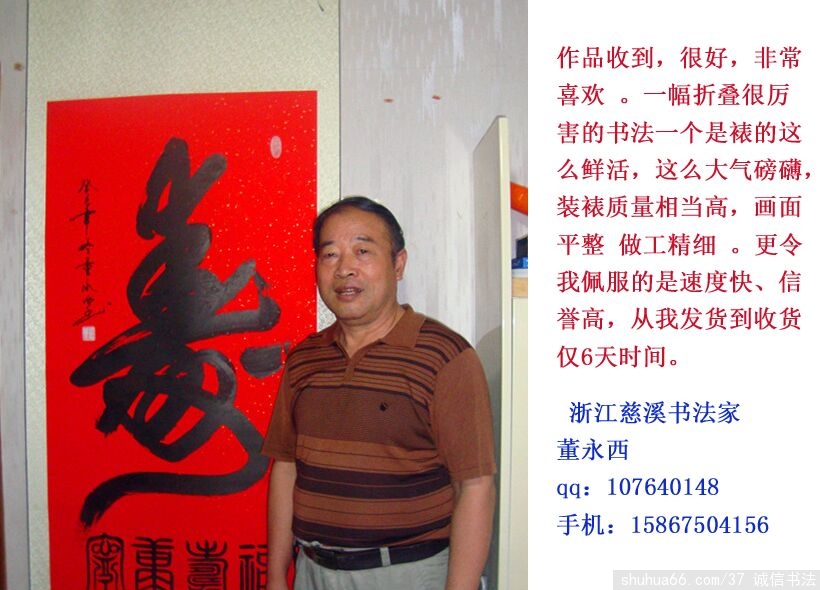 壽
寧康壽福
作品收到，很好，非常
喜欢 。一幅折叠很厉
害的书法一个是裱的这
么鲜活，这么大气磅礴，
装裱质量相当高，画面
平整 做工精细 。更令
我佩服的是速度快、信
誉高，从我发货到收货
仅6天时间。
浙江慈溪书法家
董永西
qq：107640148
手机：15867504156
shuhua66.com/37 诚信书法